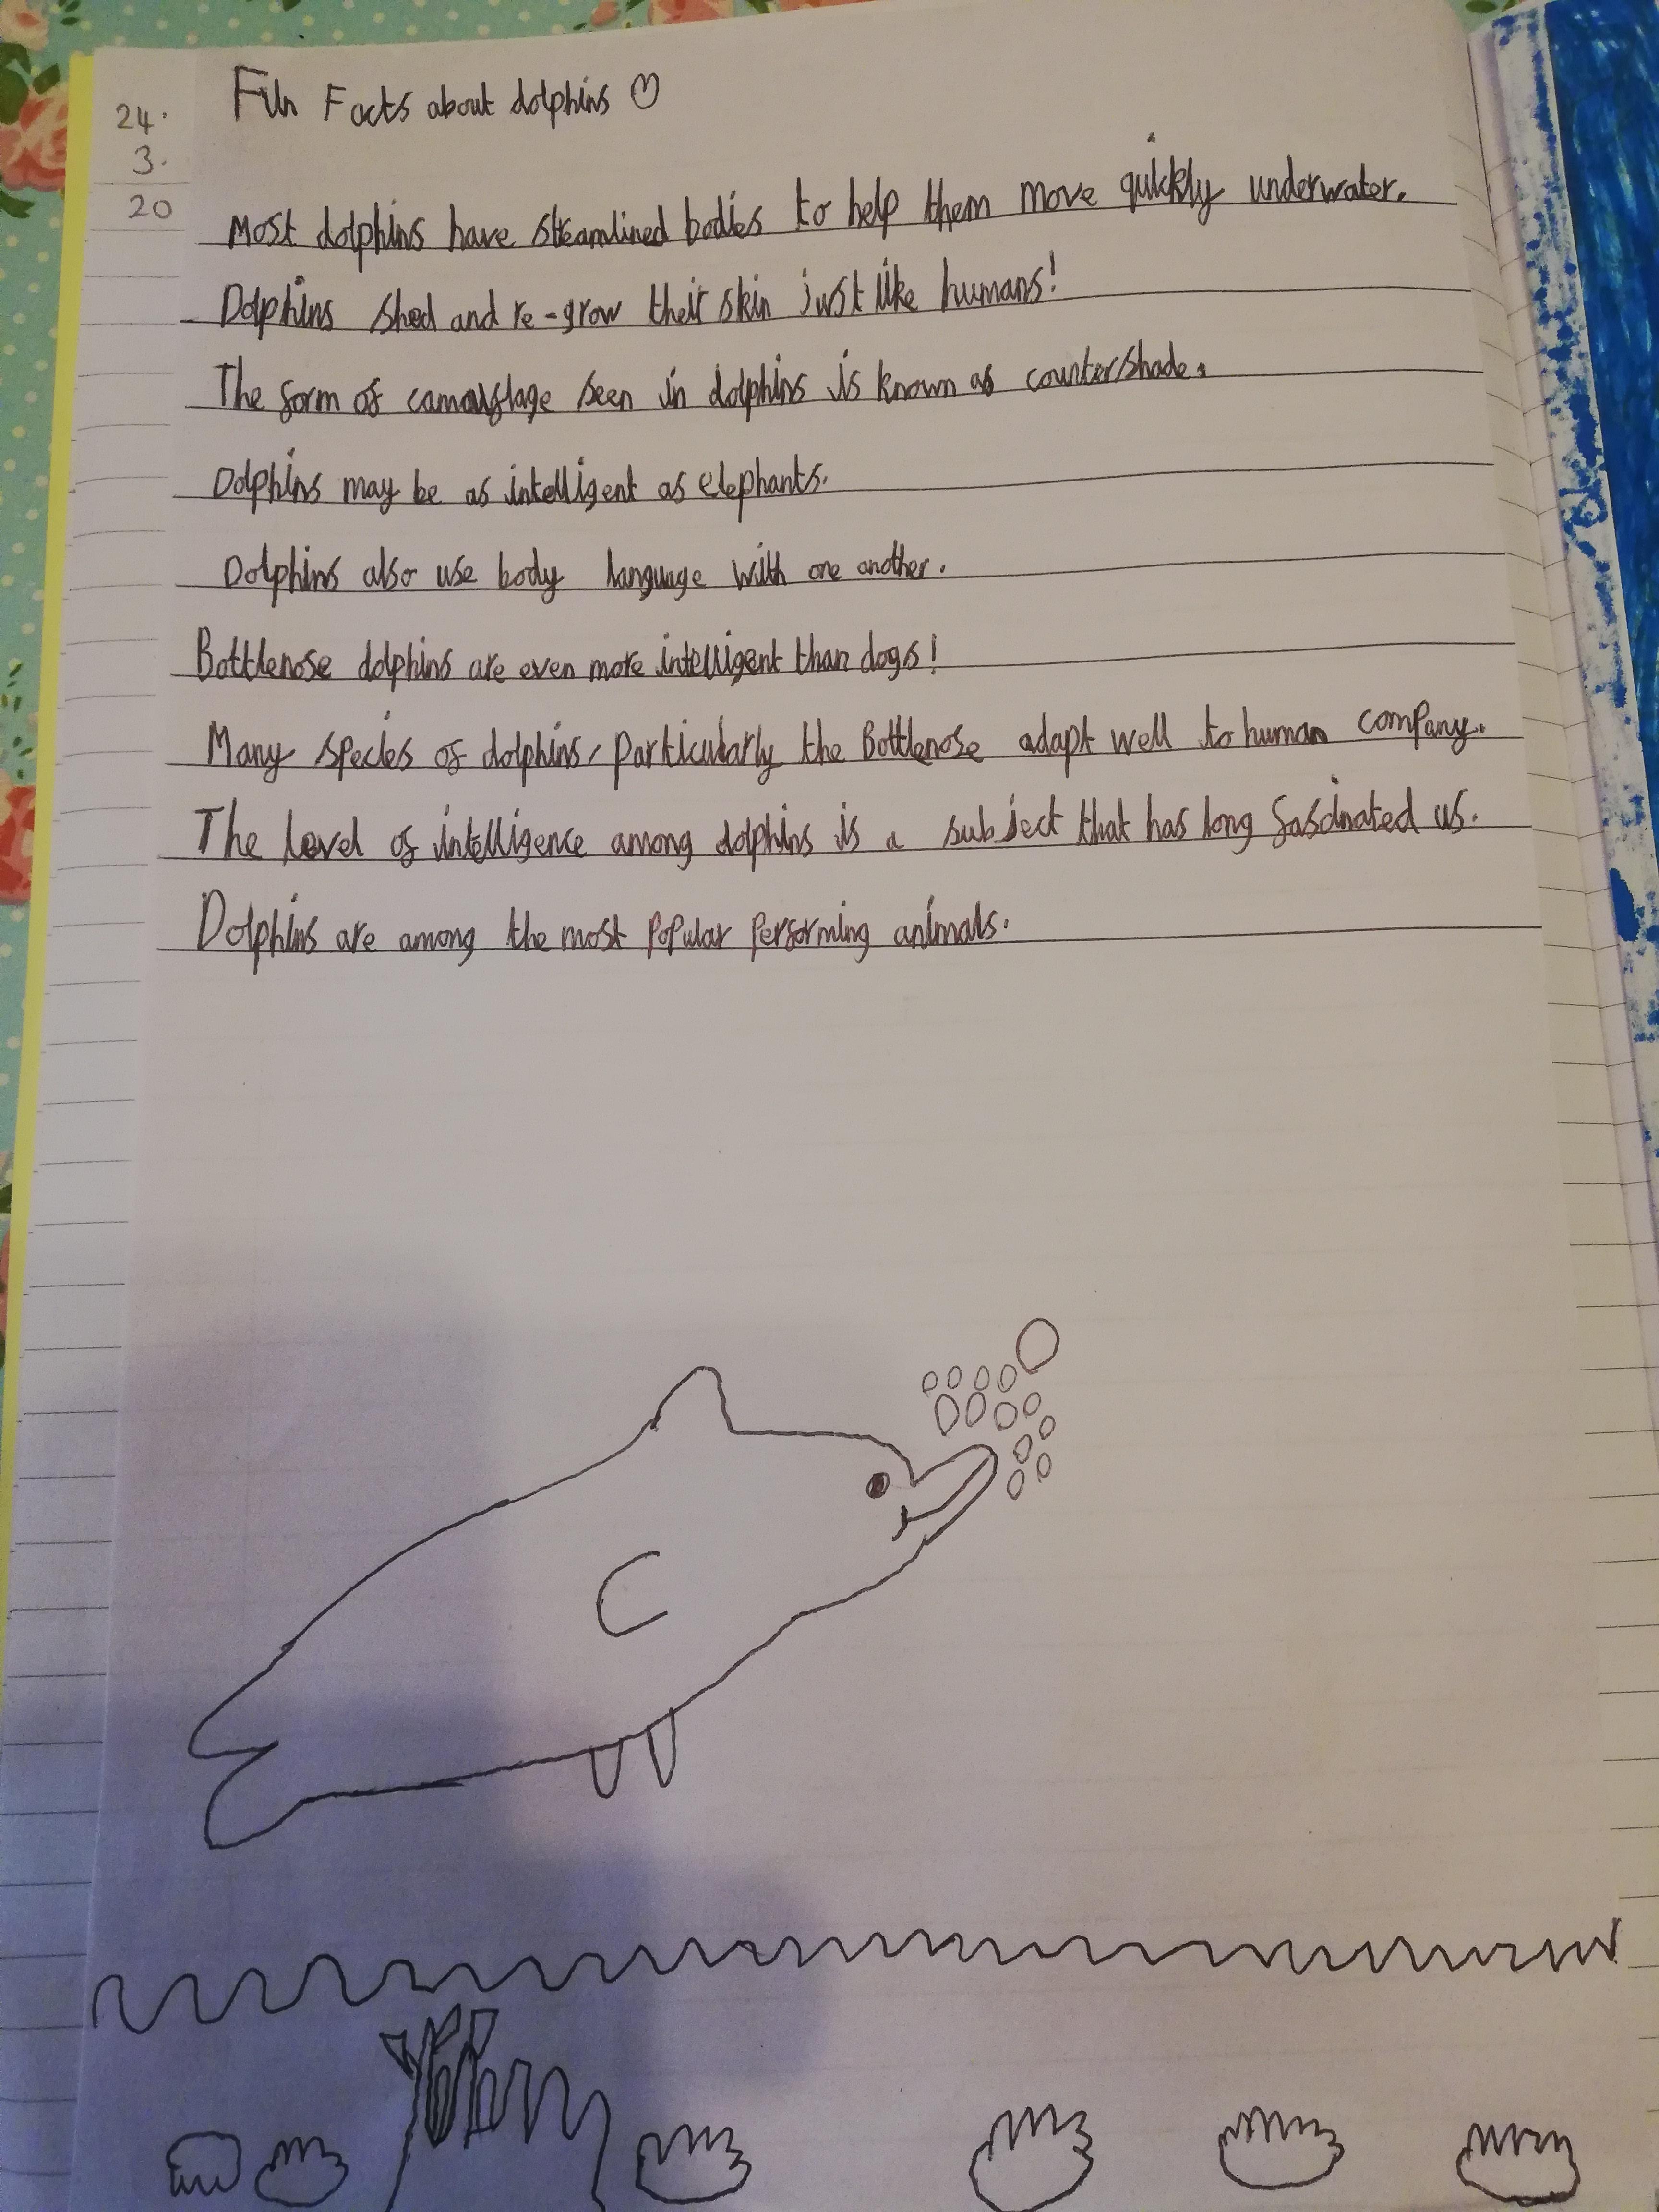 Fun Facts about dolphins
24.
3.
20
Most dolphins have streamlined bodies to help them move quickly underwater.
Dolphins shed and re-grow their skin just like humans!
The form of camouflage seen in dolphins is known as countershade.
Dolphins may be as intelligent as elephants.
Dolphins also use body language with one another.
Bottlenose dolphins are even more intelligent than dogs!
Many species of dolphins, particularly the Bottlenose adapt well to human company.
The level of intelligence among dolphins is a subject that has long fascinated us.
Dolphins are among the most popular performing animals.